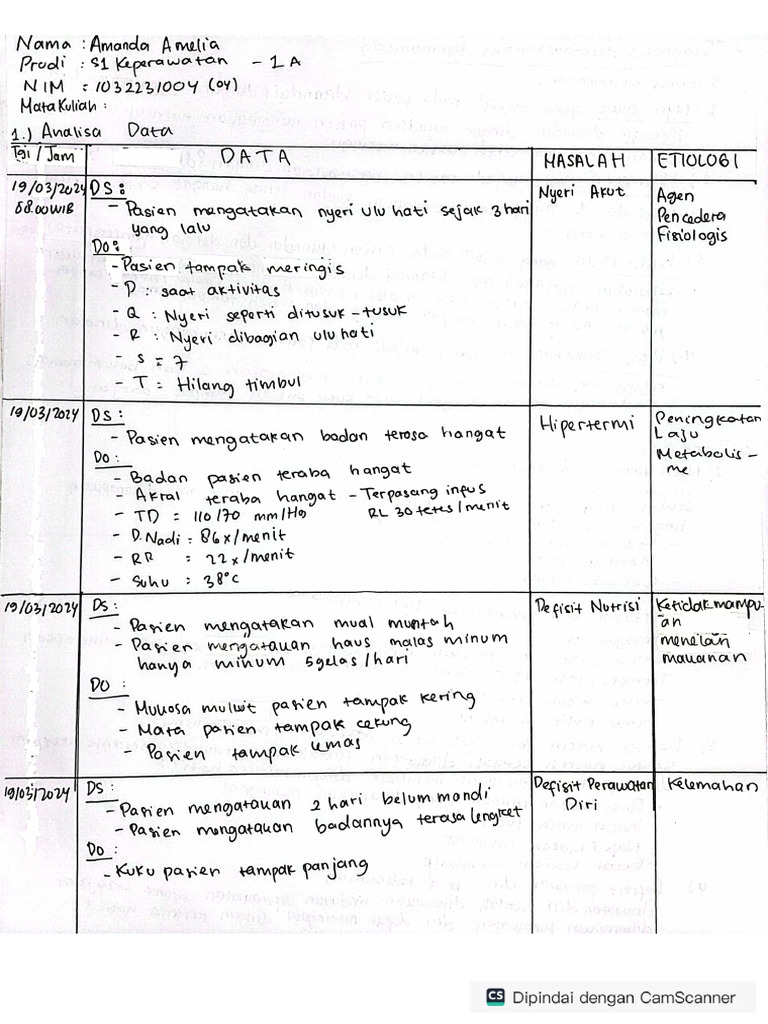 Nama : Amanda Amelia
Prodi : S1 Keperawatan - 1A
NIM : 1032231004 (04)
Mata Kuliah :
1.) Analisa Data
Tgl / Jam
DATA
MASALAH
ETIOLOGI
19/03/2024
08.00 WIB
DS :
- Pasien mengatakan nyeri ulu hati sejak 3 hari
yang lalu
DO :
- Pasien tampak meringis
- P : saat aktivitas
- Q : Nyeri seperti ditusuk - tusuk
- R : Nyeri dibagian ulu hati
- S = 7
- T = Hilang timbul
Nyeri Akut
Agen
Pencedera
Fisiologis
19/03/2024
DS :
- Pasien mengatakan badan terasa hangat
DO :
- Badan pasien teraba hangat
- Akral teraba hangat - Terpasang infus
- TD = 110/70 mm/Hg RL 30 tetes/menit
- D. Nadi = 86 x/menit
- RR : 22 x/menit
- Suhu : 38°C
Hipertermi
Peningkatan
Laju
Metabolis -
me
19/03/2024
DS :
- Pasien mengatakan mual muntah
- Pasien mengatakan haus malas minum
hanya minum 5 gelas/hari
DO :
- Mukosa mulut pasien tampak kering
- Mata pasien tampak cekung
- Pasien tampak lemas
Defisit Nutrisi
Ketidakmampu-
an
menelan
makanan
19/03/2024
DS :
- Pasien mengatakan 2 hari belum mandi
- Pasien mengatakan badannya terasa lengket
DO :
- Kuku pasien tampak panjang
Defisit Perawatan
Diri
Kelemahan
CS Dipindai dengan CamScanner